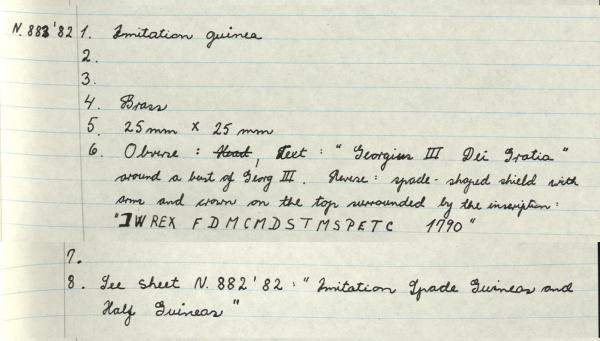 N. 883'82 1. Imitation guinea
2.
3.
4. Brass
5. 25 mm x 25 mm
6. Obverse : , Text : " Georgius III Dei Gratia "
around a bust of Georg III. Reverse : spade-shaped shield with
arms and crown on the top surrounded by the inscription :
"JW REX F D M C M D S T M S P E T C 1790"
7.
8. See sheet N. 882'82 : " Imitation Spade Guineas and
Half Guineas "